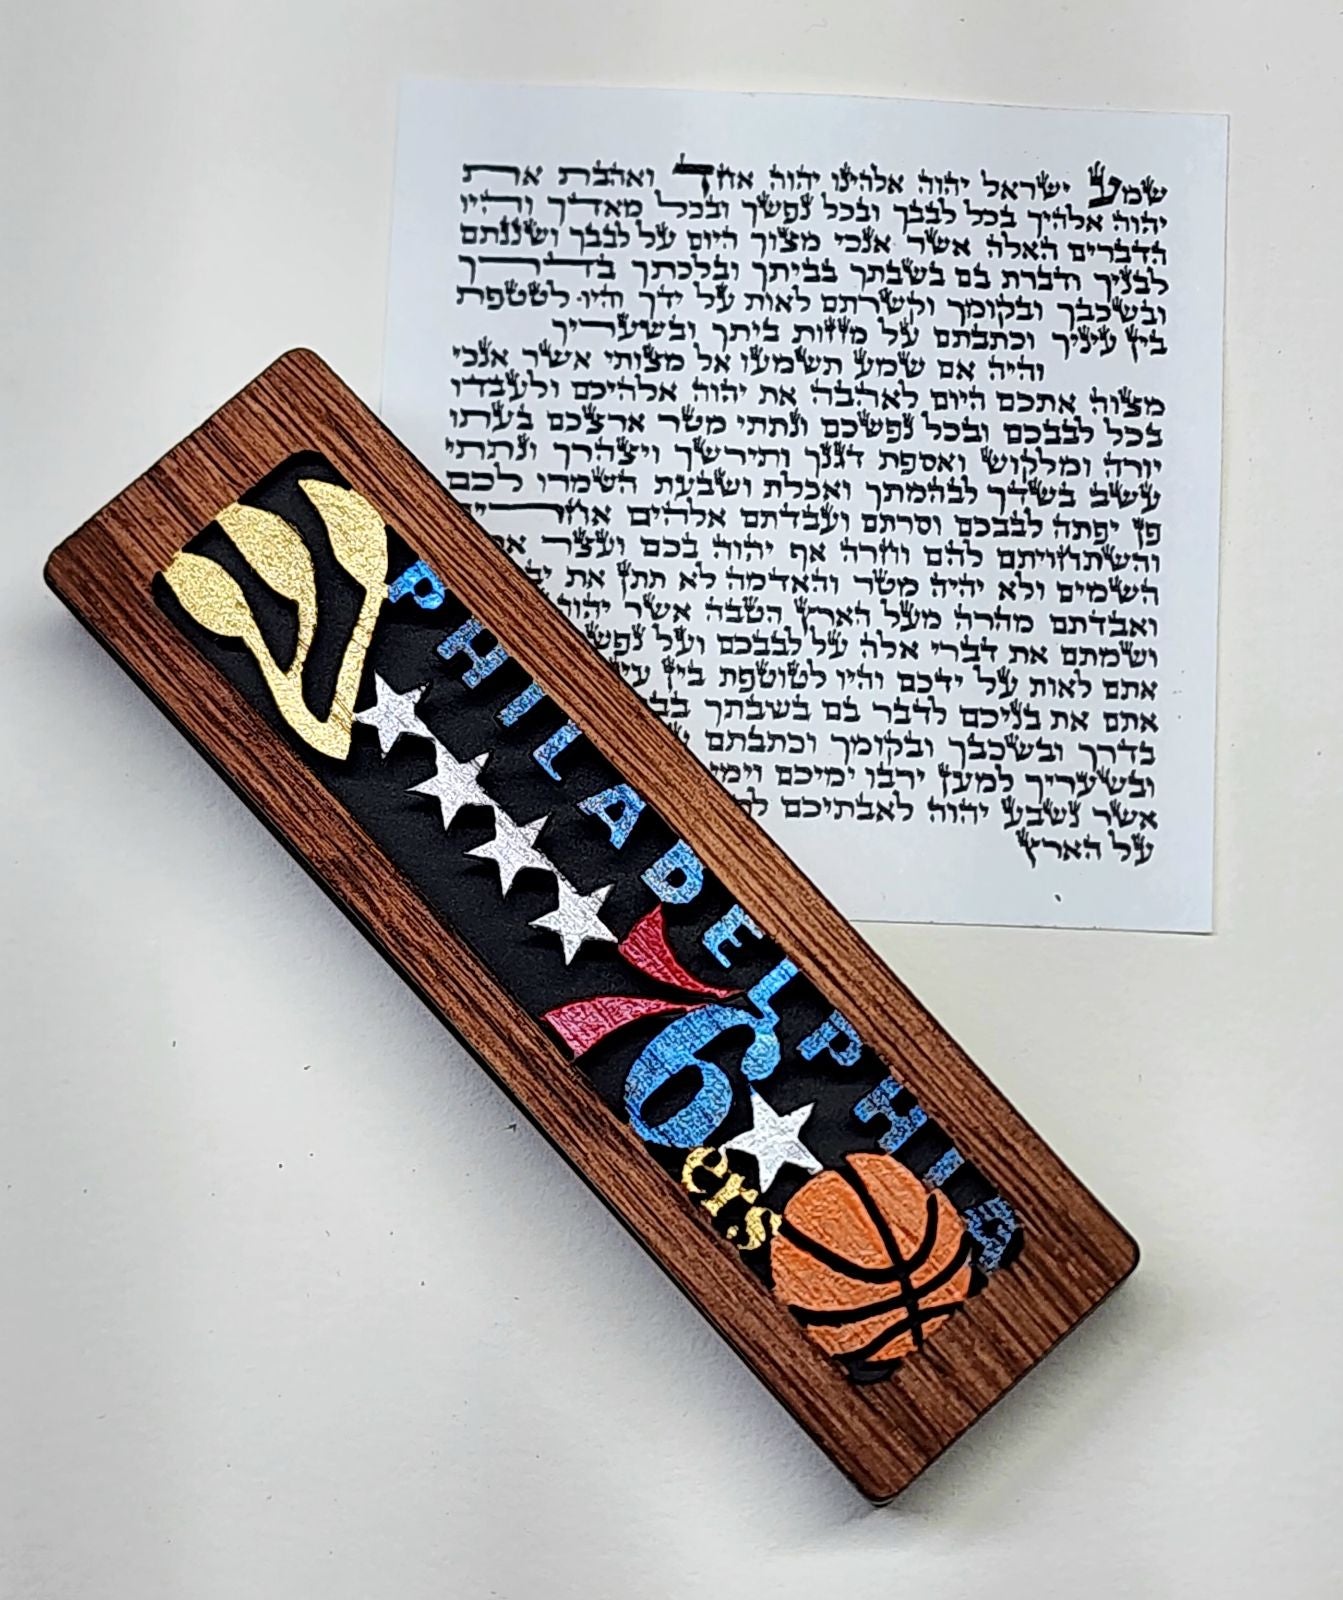 שמע ישראל יהוה אלהינו יהוה אחד ואהבת את
יהוה אלהיך בכל לבבך ובכל נפשך ובכל מאדך והיו
הדברים האלה אשר אנכי מצוך היום על לבבך ושננתם
לבניך ודברת בם בשבתך בביתך ובלכתך בדרך
ובשכבך ובקומך וקשרתם לאות על ידך והיו לטטפת
בין עיניך וכתבתם על מזזות ביתך ובשעריך
והיה אם שמע תשמעו אל מצותי אשר אנכי
מצוה אתכם היום לאהבה את יהוה אלהיכם ולעבדו
בכל לבבכם ובכל נפשכם ונתתי מטר ארצכם בעתו
יורה ומלקוש ואספת דגנך ותירשך ויצהרך ונתתי
עשב בשדך לבהמתך ואכלת ושבעת השמרו לכם
פן יפתה לבבכם וסרתם ועבדתם אלהים אחרים
והשתחויתם להם וחרה אף יהוה בכם ועצר
השמים ולא יהיה מטר והאדמה לא תתן את
ואבדתם מהרה מעל הארץ הטבה אשר יהוה
ושמתם את דברי אלה על לבבכם ועל
אתם לאות על ידכם והיו לטוטפת בין
אתם את בניכם לדבר בם בשבתך
בדרך ובשכבך ובקומך וכתבתם
ובשעריך למען ירבו ימיכם
אשר נשבע יהוה לאבתיכם
על הארץ
ש
PHILADELPHIA
76
ers